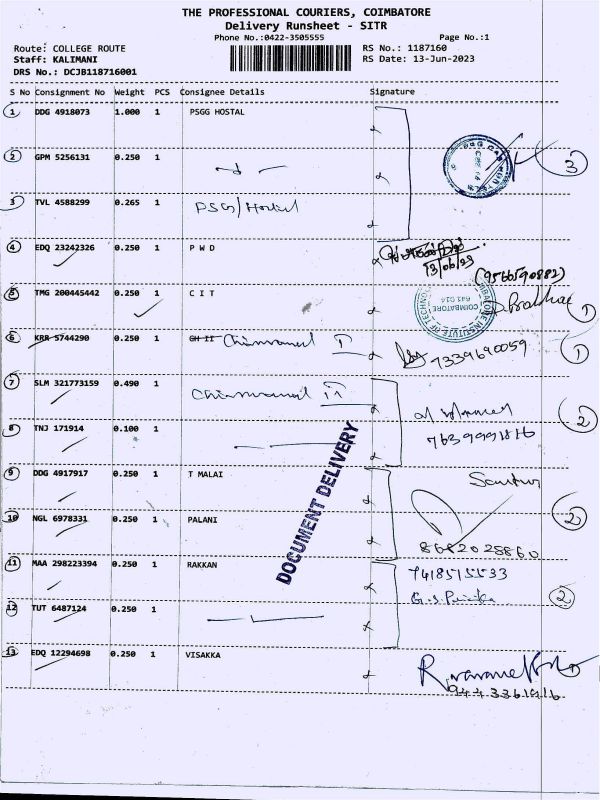 THE PROFESSIONAL COURIERS, COIMBATORE
Delivery Runsheet - SITR
Phone No.:0422-3505555 Page No.:1
Route: COLLEGE ROUTE RS No.: 1187160
Staff: KALIMANI RS Date: 13-Jun-2023
DRS No.: DCJB118716001
S No Consignment No Weight PCS Consignee Details Signature
1 DDG 4918073 1.000 1 PSGG HOSTAL
2 GPM 5256131 0.250 1
3
3 TVL 4588299 0.265 1 PSG/Hostel
4 EDQ 23242326 0.250 1 P W D
13/06/23
(9566590882)
5 TMG 200445442 0.250 1 C I T
COIMBATORE
641 014
1
6 KRR 5744290 0.250 1 GH II
7339690059
1
7 SLM 321773159 0.490 1
2
8 TNJ 171914 0.100 1
7639991816
DOCUMENT DELIVERY
9 DDG 4917917 0.250 1 T MALAI
10 NGL 6978331 0.250 1 PALANI
2
8682028860
11 MAA 298223394 0.250 1 RAKKAN
7418515533
2
12 TUT 6487124 0.250 1
13 EDQ 12294698 0.250 1 VISAKKA
9443361916